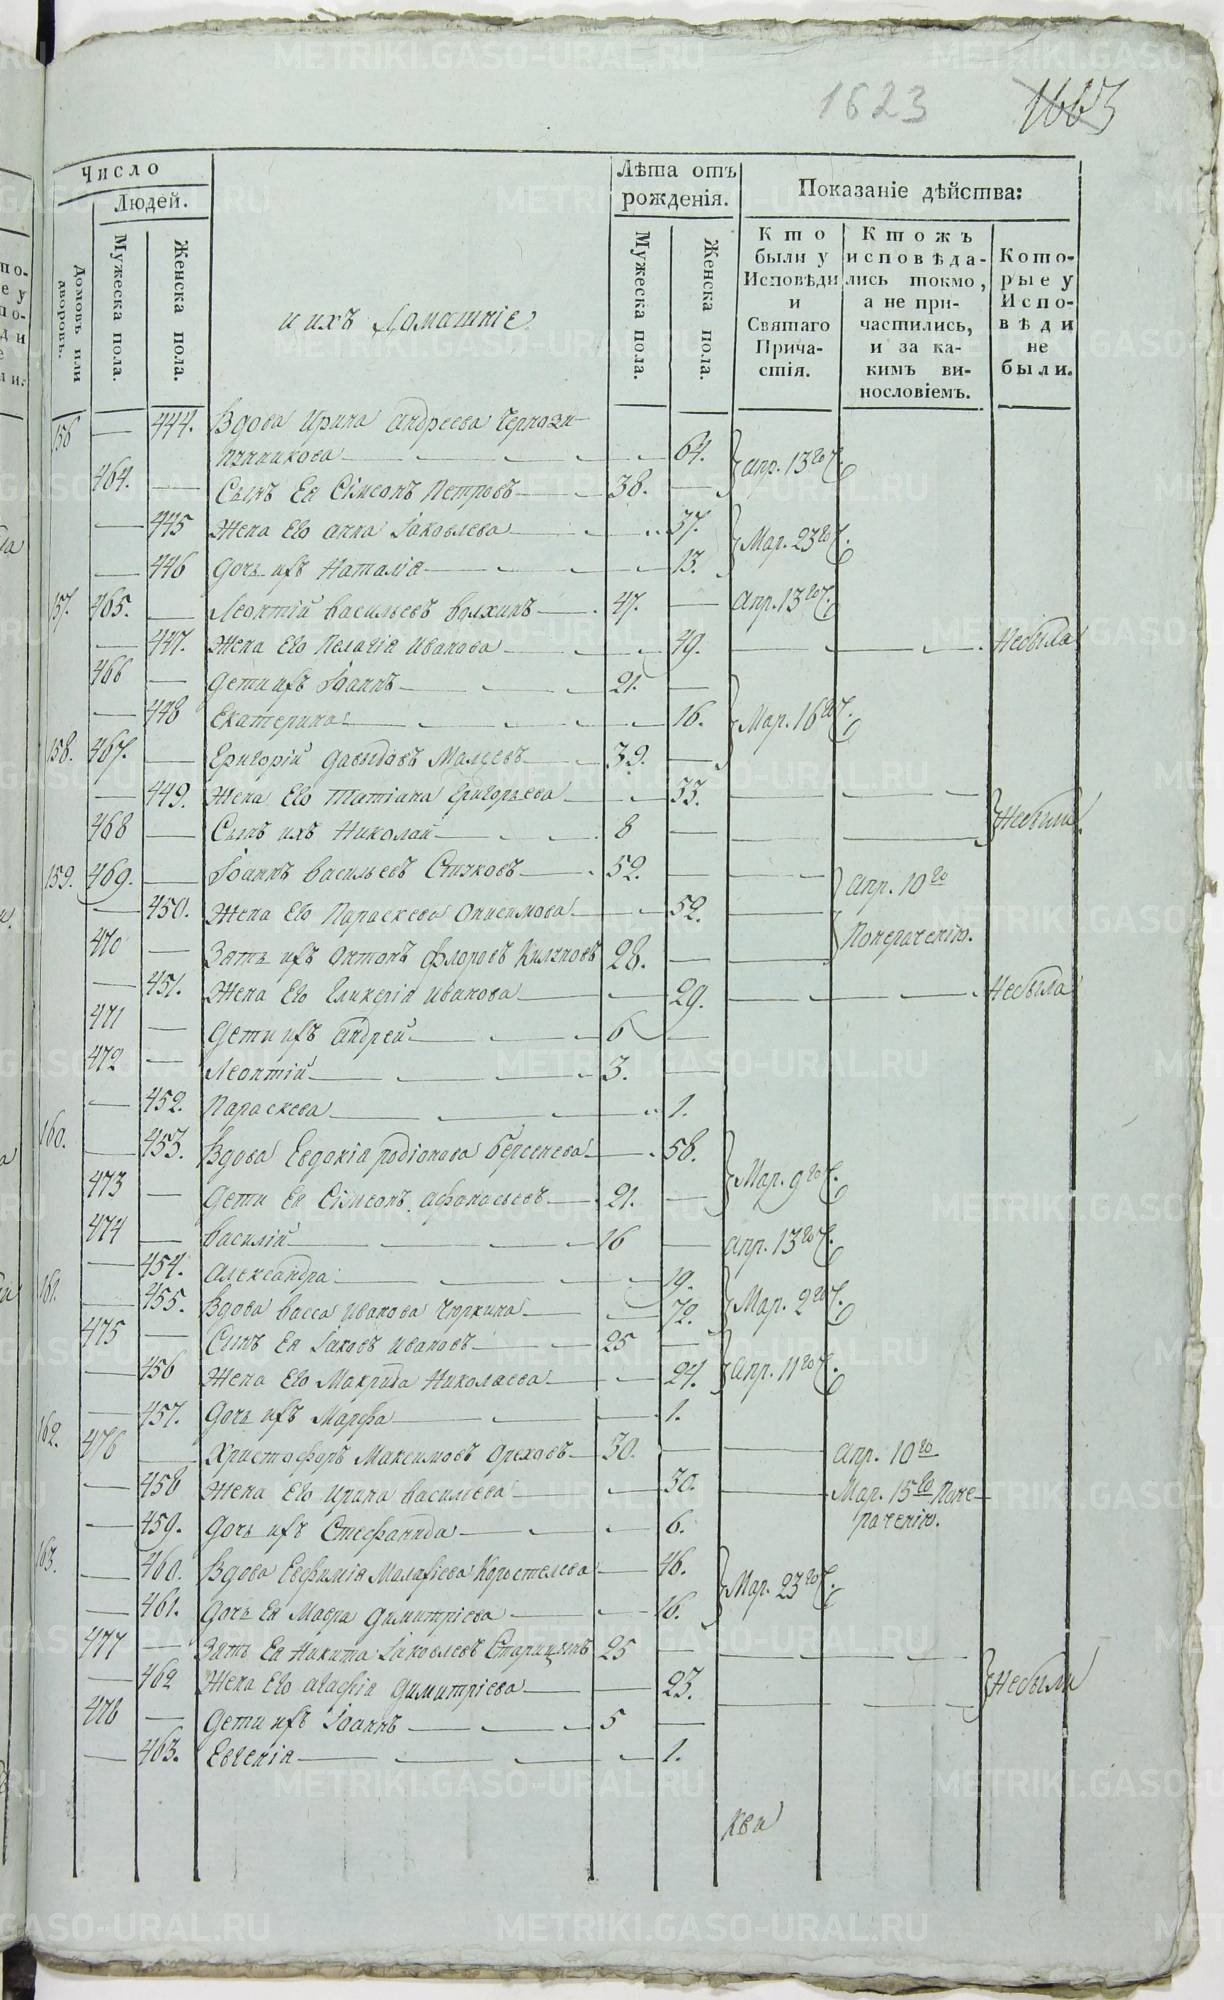 1623 1663
Число
Людей.
Домовъ или дворовъ.
Мужеска пола.
Женска пола.
и ихъ Домашніе
Лѣта отъ рожденія.
Мужеска пола.
Женска пола.
Показаніе дѣйства:
Кто были у Исповѣди и Святаго Причастія.
Ктожъ исповѣдались токмо, а не причастились, и за какимъ винословіемъ.
Которые у Исповѣди не были.
156 — 444. Вдова Ирина Андреева Черпази-
пчникова — 64. Апр. 13го Ч.
464. — Сынъ Ея Сѵмеонъ Петровъ — 38. —
— 445 Жена Его Анна Іаковлева — 37. Мар. 23го Ч.
— 446 Дочь ихъ Наталія — 13.
157. 465. — Леонтій Васильевъ Волхинъ — 47. — Апр. 13го Ч.
— 447. Жена Его Пелагія Иванова — 49. — Небыла
466 — Дети ихъ Іоаннъ — 21. —
— 448 Екатерина — 16. Мар. 16го Ч.
158. 467. — Григорій Давыдовъ Малеевъ — 39. —
— 449. Жена Его Татіана Григорьева — 33. — Небыли
468 — Сынъ ихъ Николай — 8 —
159. 469. — Іоаннъ Васильевъ Стуковъ — 52. — Апр. 10го
— 450. Жена Его Параскева Онисимова — 52. —
470 — Зять ихъ Антонъ Флоровъ — 28. — Понераченію.
— 451. Жена Его Гликерія Иванова — 29. — Небыла
471 — Дети ихъ Андрей — 6 —
472 — Леонтій — 3. —
— 452. Параскева — 1.
160. — 453. Вдова Евдокія Родіонова Берсенева — 58. Мар. 9го Ч.
473 — Дети Ея Сѵмеонъ Афонасьевъ — 21. —
474 — Василій — 16 — Апр. 13го Ч.
— 454. Александра — 19. Мар. 2го Ч.
161. — 455. Вдова Васса Иванова Чюркина — 72.
475 — Сынъ Ея Іаковъ Ивановъ — 25 — Апр. 11го Ч.
— 456 Жена Его Макрида Николаева — 24.
— 457. Дочь ихъ Марфа — 1.
162. 476 — Христофоръ Максимовъ Ореховъ — 30. — Апр. 10го
— 458 Жена Его Ирина Васильева — 30. — Мар. 15го Поне-
раченію.
— 459. Дочь ихъ Стефанида — 6.
163. — 460. Вдова Евфимія Малафіева Коростелева — 46. Мар. 23го Ч.
— 461. Дочь Ея Мавра Димитріева — 16.
477 — Зять Ея Никита Іаковлевъ Старицынъ 25 — Небыли
— 462 Жена Его Агафія Димитріева — 23.
478 — Дети ихъ Іоаннъ — 5 —
— 463. Евгенія — 1.
METRIKI.GASO-URAL.RU